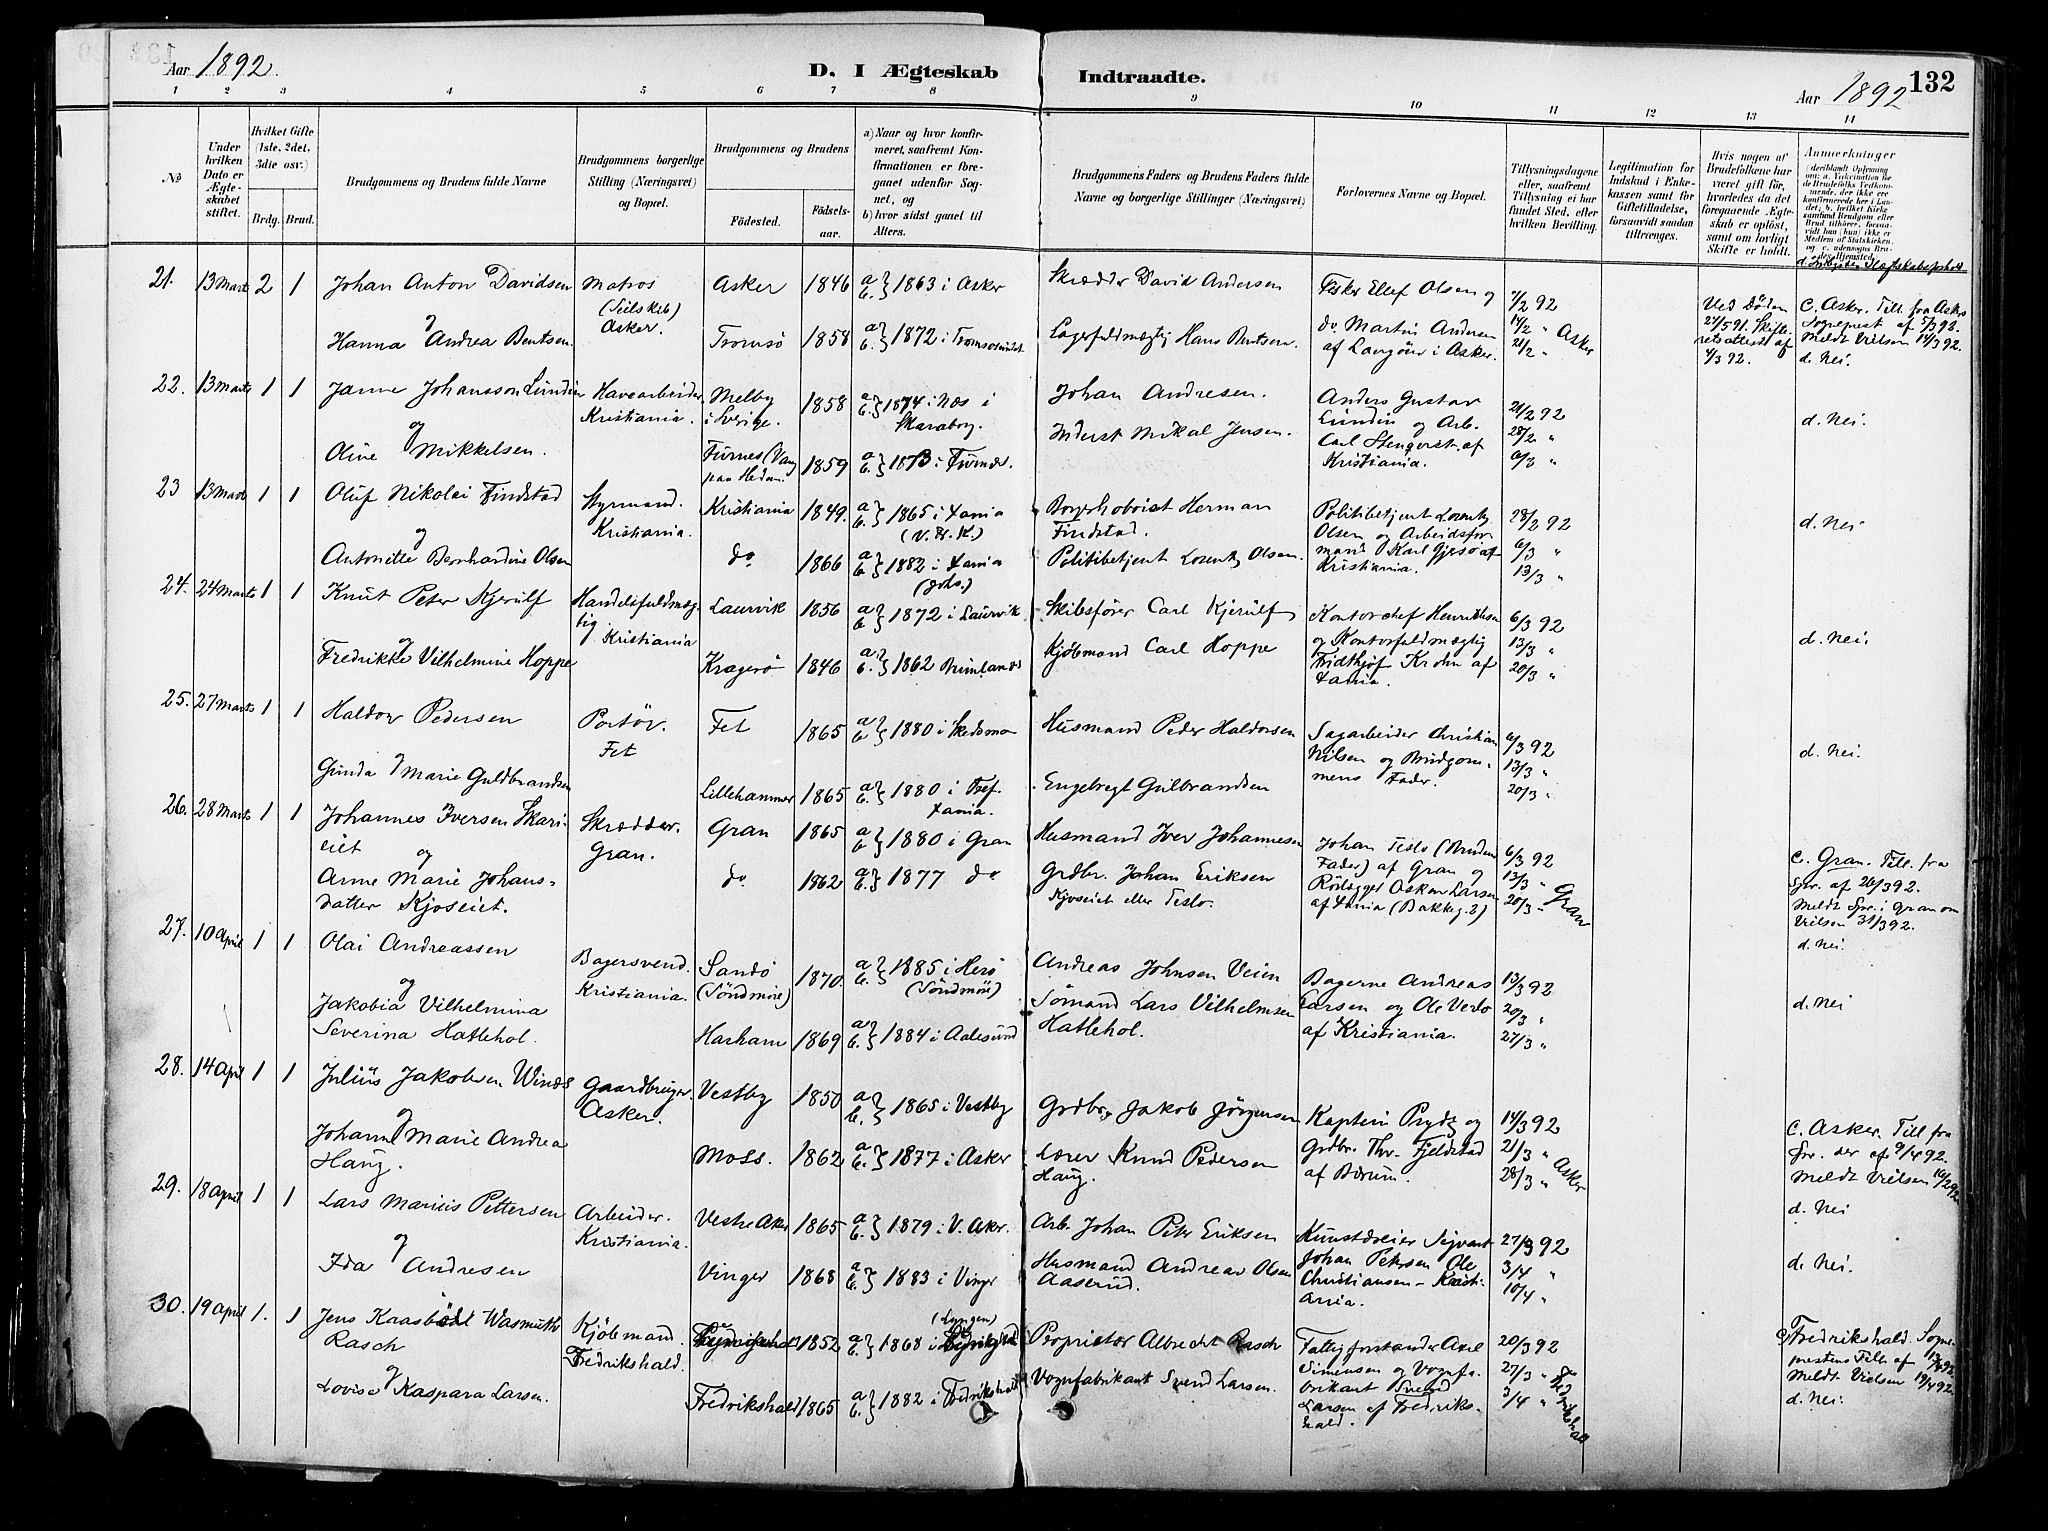 Aar 1892.
D. I Ægteskab Indtraadte.
Aar 1892
132
1 2 3 4 5 6 7 8 9 10 11 12 13 14
No
Under hvilken Dato er Ægteskabet stiftet.
Hvilket Gifte (1ste, 2det, 3die osv.)
Brdg. Brud.
Brudgommens og Brudens fulde Navne
Brudgommens borgerlige Stilling (Næringsvei) og Bopæl.
Brudgommens og Brudens
Fødested.
Fødselsaar.
a) Naar og hvor konfirmeret, saafremt Konfirmationen er foregaaet udenfor Sognet, og
b) hvor sidst gaaet til Alters.
Brudgommens Faders og Brudens Faders fulde Navne og borgerlige Stillinger (Næringsvei)
Forlovernes Navne og Bopæl.
Tillysningsdagene eller, saafremt Tillysning ei har fundet Sted, efter hvilken Bevilling.
Legitimation for Indskud i Enkekassen samt for Giftetilladelse, forsaavidt saadan tiltrænges.
Hvis nogen af Brudefolkene har været gift før, hvorledes da det foregaaende Ægteskab er opløst, samt om lovligt Skifte er holdt.
Anmærkninger
21. 13 Marts 2 1 Johan Anton Davidsen Matros (Seilskib) Asker. Asker 1846 a b } 1863 i Asker Skrædder David Andersen Fisker Ellef Olsen og 7/2 92
og Hanna Andrea Bentsen Tromsö 1858 a b } 1872 i Tromsö Lagerfuldmægtig Hans Bentsen. do. Martin Andersen af Langöen i Asker. 14/2 " 21/2 " Asker
Ved Döden 27/5 91. Skifteretsattest af 4/3 92. C. Asker. Till. fra Askers Sognepræst af 5/3 92. Meldt Vielsen 14/3 92. d. Nei.
22. 13 Marts 1 1 Janne Johansson Lundin Havearbeider. Kristiania. Melby i Sverige. 1858 a b } 1874 i Næs i Skaraborg. Johan Andresen. Anders Gustav Lundin og Arb. 21/2 92
og Oline Mikkelsen. Furnes (Vang paa Hedem.) 1859 a b } 1873 i Furnæs. Inderst Mikal Jensen. Carl Stenqvist af Kristiania. 28/2 " 6/3 " d. Nei.
23 13 Marts 1 1 Oluf Nikolai Findstad Styrmand. Kristiania. Kristiania 1849. a b } 1865 i Xania (V. Fr. K.) Borgerhoboist Herman Findstad. Politibetjent Lorentz Olsen og Arbeidsformand Karl Gjesö af Kristiania. 28/2 92
og Antonette Bernhardine Olsen do 1866 a b } 1882 i Xania (Johs.) Politibetjent Lorentz Olsen. 6/3 " 13/3 " d. Nei.
24. 24 Marts 1 1 Knut Peter Kjerulf Handelsfuldmægtig Kristiania Laurvik 1856 a b } 1872 i Laurvik Skibsförer Carl Kjerulf Kontorchef Henrichsen og Kontorfuldmægtig Fridthjof Krohn af Xania. 6/3 92
og Fredrikke Vilhelmine Hoppe Kragerö 1846 a b } 1862 Kjöbmand Carl Hoppe 13/3 " 20/3 " d. Nei.
25. 27 Marts 1 1 Haldor Pedersen Portör. Fet Fet 1865 a b } 1880 i Skedsmo Husmand Peder Haldorsen Sagarbeider Christian Nilsen og Brudgommens Fader. 6/3 92
og Gunda Marie Guldbrandsen Lillehammer 1865 a b } 1880 i Xania. Engebregt Gulbrandsen 13/3 " 20/3 " d. Nei.
26. 28 Marts 1 1 Johannes Iversen Skarieiet Skrædder. Gran. Gran 1865 a b } 1880 i Gran Husmand Iver Johannesen Johan Teslo (Brudens Fader) af Gran og 6/3 92
og Anne Marie Johansdatter Kjoseiet. do 1862 a b } 1877 do Grdbr. Johan Eriksen Kjoseiet eller Teslo. Oskar Larsen af Xania (Bakkeg. 2) 13/3 " 20/3 " Gran
C. Gran. Till. fra Spr. af 26/3 92. Meldt Spr. i Gran om Vielsen 31/3 92. d. Nei.
27. 10 April 1 1 Olai Andreassen Bagersvend. Kristiania. Sandö (Söndmöre) 1870. a b } 1885 i Herö (Söndmöre) Andreas Johnsen Veien Bagerne Andreas Larsen og Ole Verlo af Kristiania. 13/3 92
og Jakobia Vilhelmina Severina Hatlehol. Harham 1869 a b } 1884 i Aalesund Sömand Lars Vilhelmsen Hatlehol. 20/3 " 27/3 " d. Nei
28. 14 April 1 1 Julius Jakobsen Gaardbruger Asker. Vestby 1850 a b } 1865 i Vestby Grdbr. Jakob Jörgensen Kaptein Prydz og 14/3 92
og Johanne Marie Andrea Haug. Moss. 1862 a b } 1877 i Asker Lærer Knud Pedersen Haug. Grdbr. Thr. Fjeldstad af Bærum. 21/3 " 28/3 " Asker
C. Asker. Till fra Spr. der af 9/4 92. Meldt Vielsen 16/ 92 d. Nei
29. 18 April 1 1 Lars Marius Pettersen Arbeider. Kristiania. Vestre Aker 1865 a b } 1879 i V. Aker. Arb. Johan Peter Eriksen Kunstdreier Sigvart Johan Petersen Ole Christiansen - Kristiania. 27/3 92
og Ida Andresen Vinger 1868 a b } 1883 i Vinger Husmand Andreas Olsen Aaserud. 3/4 " 10/4 " d. Nei.
30. 19 April 1. 1 Jens Kraaböl Wasmuth Rasch Kjöbmand. Fredrikshald. 1852 a b } 1868 i (Lyngen) Proprietær Albrecht Rasch Fattigforstander Axel Simensen og Vognfabrikant Svend Larsen af Fredrikshald. 20/3 92
og Lovise Kaspara Larsen. Fredrikshald 1865 a b } 1882 i Fredrikshald Vognfabrikant Svend Larsen. 27/3 " 3/4 " Fredrikshald
C. Fredrikshald. Sognepræstens Till. af 92. Meldt Vielsen 19/4 92. d. Nei.